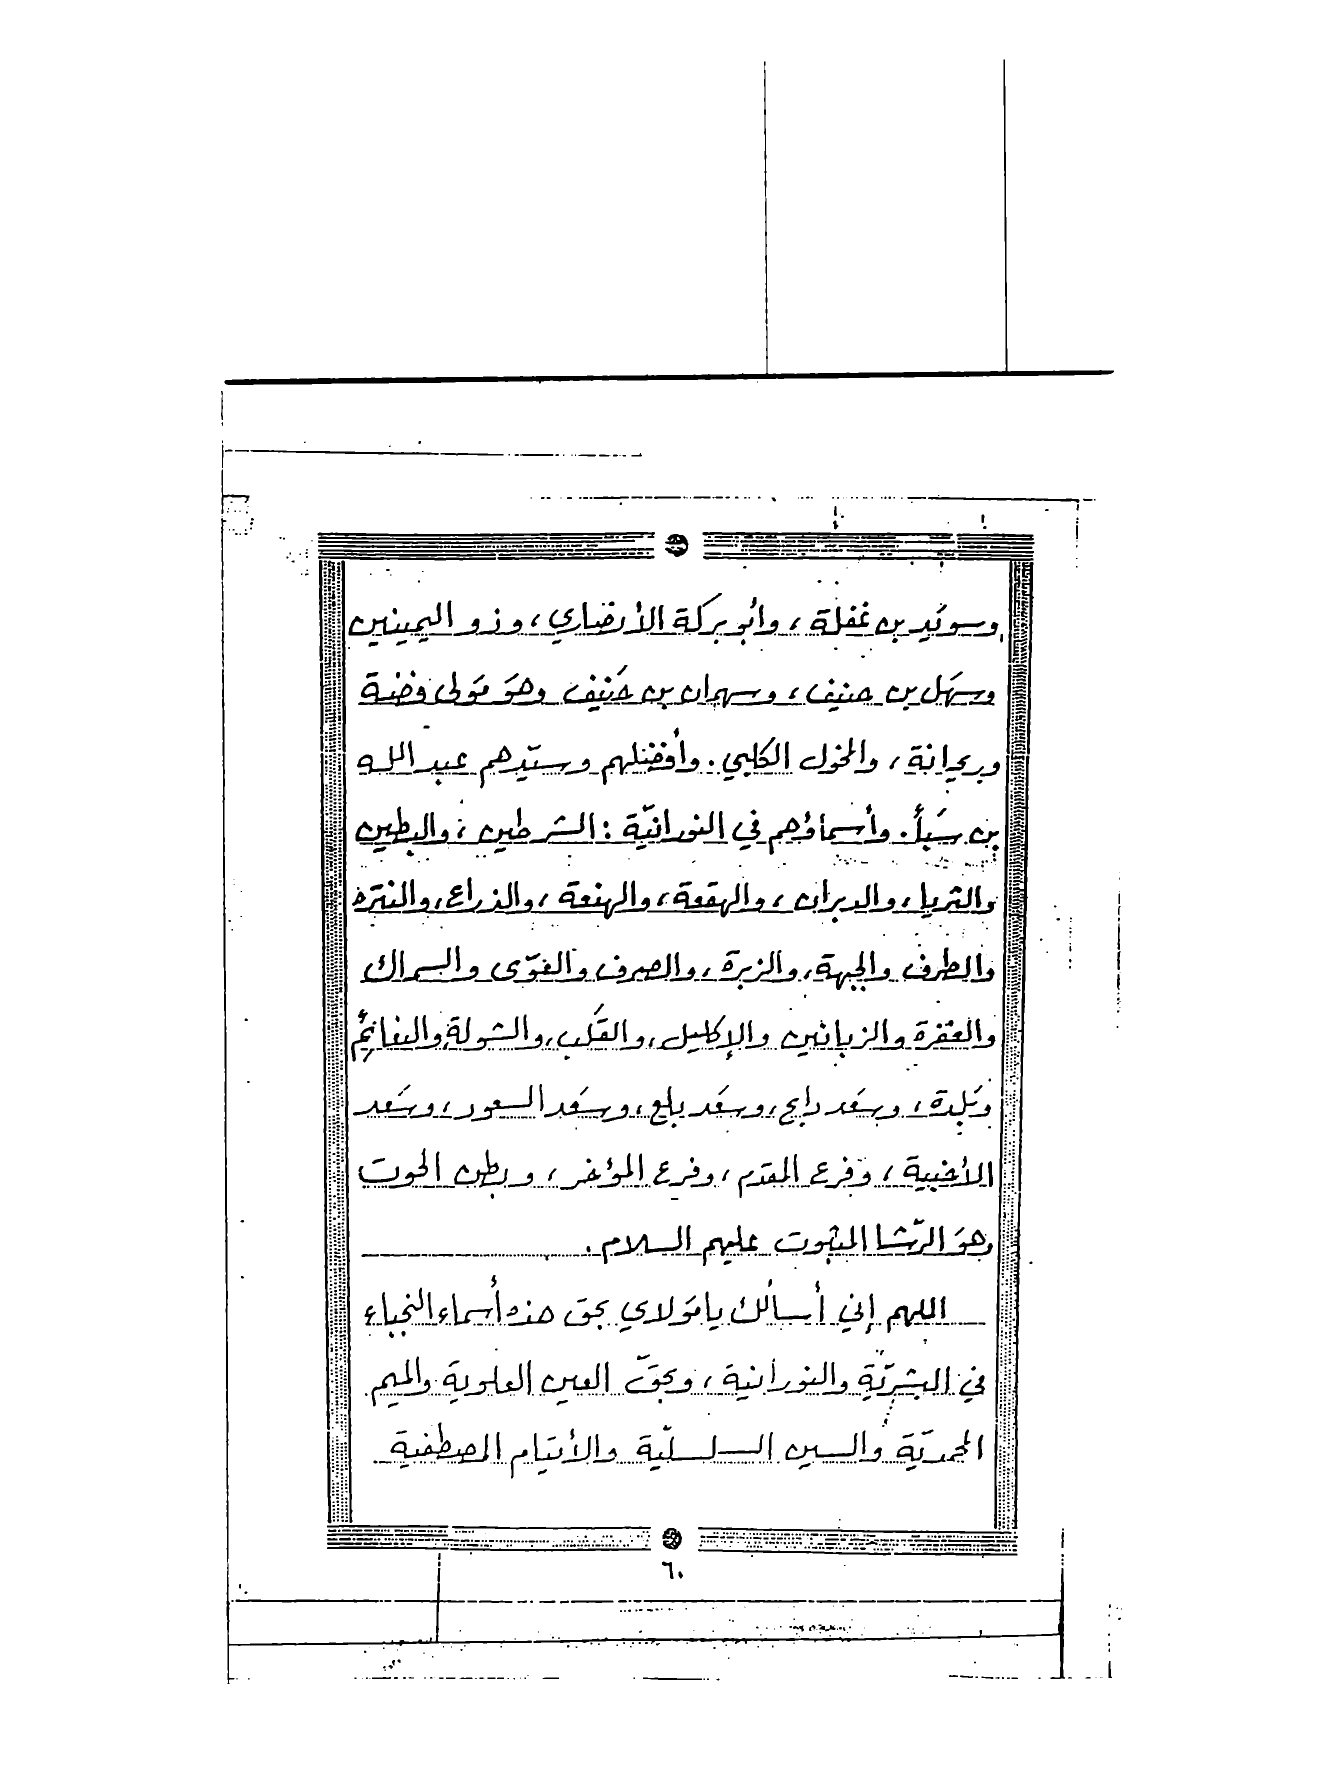 وسويد بن غفلة ، وأبو بركة الأنصاري ، وذو اليمينين
وسهل بن حنيف ، وسهران بن حَنيف وهوَ مَولى فضة
وريحانة ، والخول الكلبي . وأفضلهم وسيّدهم عبد الله
بن سَبأ . وأسماؤهم في النورانيّة : الشرطين ، والبطين
والثريا ، والدبران ، والهقعة ، والهنعة ، والذراع ، والنتره
والطرف والجبهة ، والزبرة ، والصرف والغوّى والسماك
والغفرة والزبانين والإكليل ، والقَلب ، والشولة والنعائمُ
وبَلدة ، وسَعد دابح ، وسعَد بلع ، وسَعد السعود ، وسَعد
الأخبية ، وَفرع المقدم ، وفرع المؤخر ، وبطن الحوت
وهوَ الرّشا المثبوت عليهم السلام .
اللهم إني أسألك يا مَولاي بحق هذه أسماء النجباء
في البشريّة والنورانية ، وبحقّ العين العلوية والميم
المحمديّة والسين السلسليّة والأيتام المصطفية
٦٠